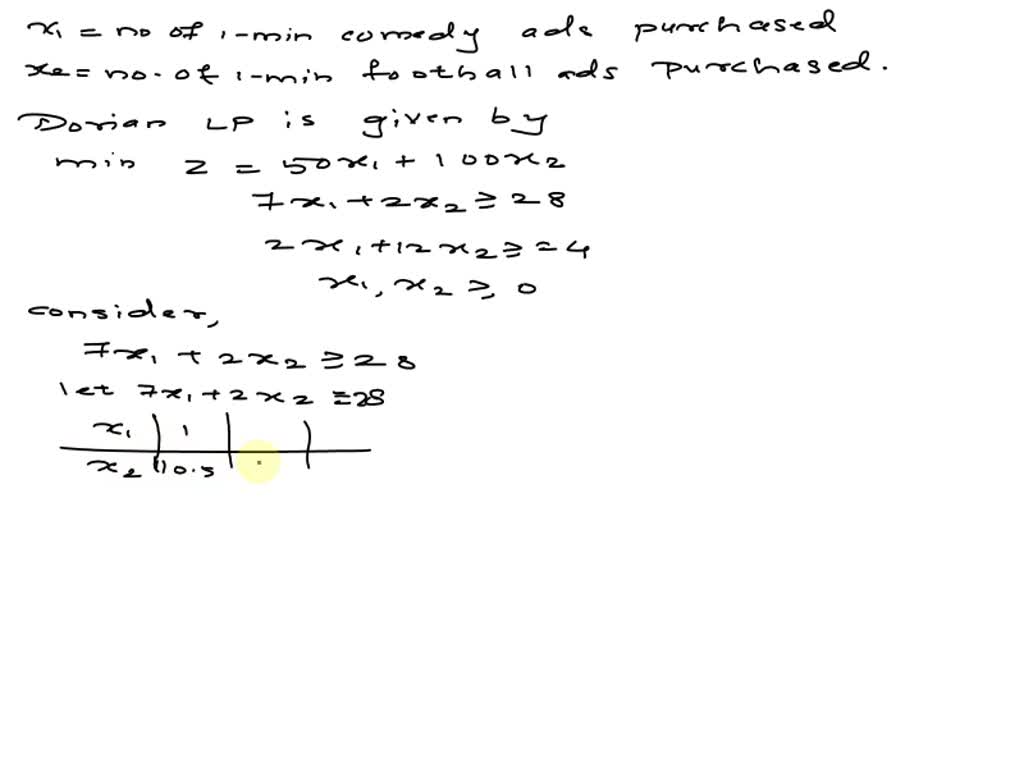 x₁ = no of 1-min comedy ads purchased
x₂ = no. of 1-min football ads purchased.
Dorian LP is given by
min z = 50x₁ + 100x₂
7x₁ + 2x₂ ≥ 28
2x₁ + 12x₂ ≥ = 4
x₁, x₂ ≥, 0
consider,
7x₁ + 2x₂ ≥ 28
let 7x₁ + 2x₂ = 28
x₁ | 1 | |
x₂ | 10.5 | . |